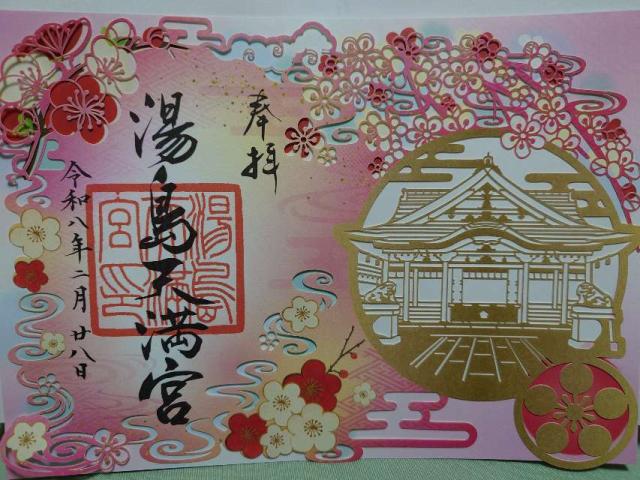 奉拝
湯島天満宮
湯島天満宮印
令和八年二月廿八日